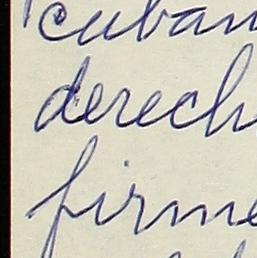 cuban
derech
firme